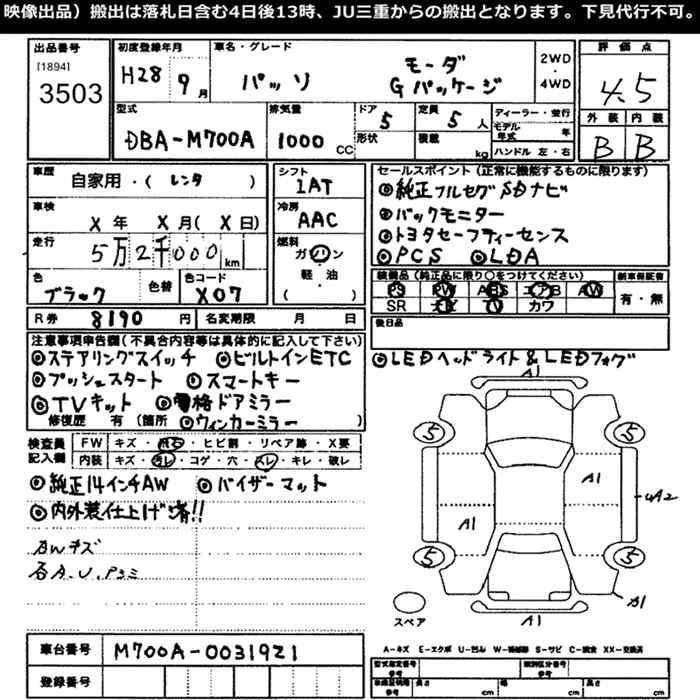 映像出品）搬出は落札日含む4日後13時、JU三重からの搬出となります。下見代行不可。
出品番号
[1894]
3503
初度登録年月
H28 9月
車名・グレード
パッソ
モーダ
Gパッケージ
2WD
・
4WD
評価点
4.5
型式
DBA-M700A
排気量
1000 CC
ドア
5
形状
定員
5人
積載
kg
ディーラー・並行
モデル年式 年
ハンドル 左・右
外装 内装
B B
車歴
自家用・(レンタ )
車検
X年 X月(X日)
走行
5万2千000km
色
ブラック
色替
色コード
X07
シフト
IAT
冷房
AAC
燃料
ガソリン
軽・油
( )
セールスポイント(正常に機能するものに限ります)
◎純正フルセグSDナビ
◎バックモニター
◎トヨタセーフティーセンス
◎PCS ◎LDA
装備品(純正品に限り○をつけてください)
PS PW ABS エアB AW
SR ナビ TV カワ
新車保証書
有・無
後日品
R券 8190円
名変期限 月 日
注意事項申告欄(不具合内容等は具体的に記入して下さい)
◎ステアリングスイッチ ◎ビルトインETC
◎プッシュスタート ◎スマートキー
◎TVキット ◎電格ドアミラー
修復歴 有 (箇所 ◎ウィンカーミラー)
◎LEDヘッドライト&LEDフォグ
検査員記入欄
FW キズ・飛石・ヒビ割・リペア跡・X要
内装 キズ・汚レ・コゲ・穴・スレ・キレ・破レ
◎純正14インチAW ◎バイザーマット
◎内外装仕上げ済!!
AWキズ
各A.U.Pヨミ
A1
5
5
A1
A1
UA2
5
5
A1
A1
スペア
A-キズ E-エクボ U-凹ミ W-補修跡 S-サビ C-腐食 XX-交換済
車台番号
M700A-0031921
登録番号
型式指定番号
参考
類別区分番号
参考
長さ cm
幅 cm
高さ cm